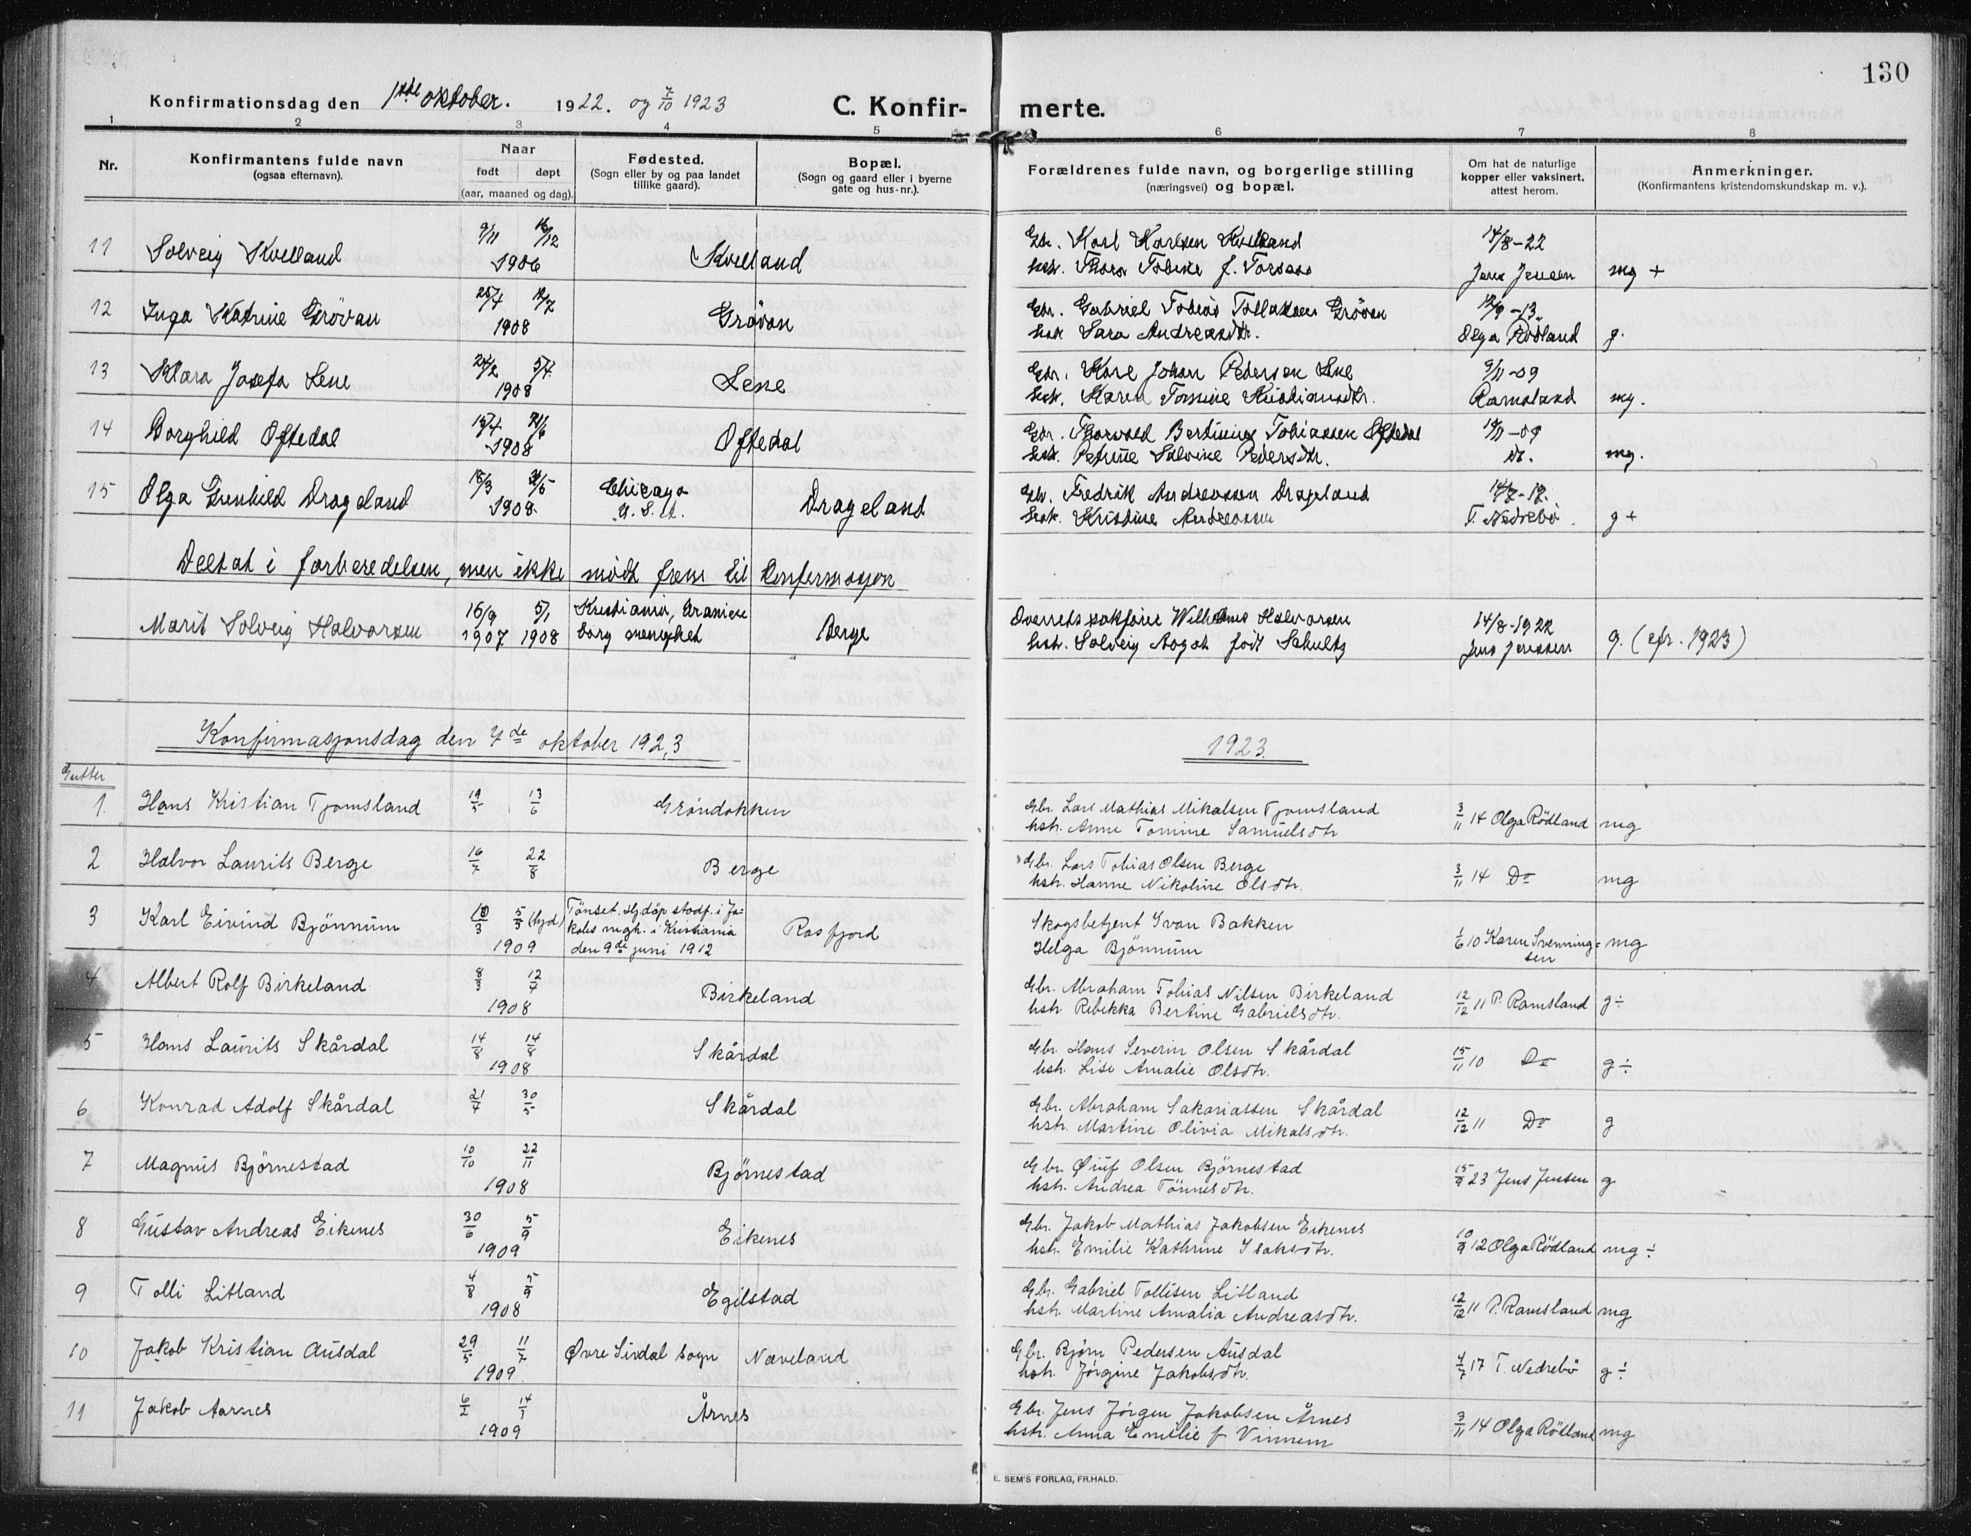 130
Konfirmationsdag den 1ste oktober. 1922. og 7/10 1923
C. Konfirmerte.
1 2 3 4 5 6 7 8
Nr.
Konfirmantens fulde navn
(ogsaa efternavn).
Naar
født døpt
(aar, maaned og dag).
Fødested.
(Sogn eller by og paa landet
tillike gaard).
Bopæl.
(Sogn og gaard eller i byerne
gate og hus-nr.).
Forældrenes fulde navn, og borgerlige stilling
(næringsvei) og bopæl.
Om hat de naturlige
kopper eller vaksinert,
attest herom.
Anmerkninger.
(Konfirmantens kristendomskundskap m. v.).
11 Solveig Kvelland 9/11 16/12 1906 Kvelland
Gbr. Karl Karlsen Kvelland 14/8-22
hstr. Thora Tobine f. Jens Jensen mg +
12 Inga Katrine Grövan 25/4 1908 Grövan
Gbr. Gabriel Tobias Tollaksen Grövan 12/9-13
hstr. Sara Andreasdtr. Olga Rödland g.
13 Klara Josefa Lene 24/2 5/4 1908 Lene
Gbr. Karl Johan Pedersen Lene 9/11-09
hstr. Karen Tomine Kristiansdtr. Ramsland mg.
14 Borghild Oftedal 1908 Oftedal
Gbr. Thorvald Bertinius Tobiassen Oftedal 19/11-09
hstr. Petrine Salvine Pedersdtr. Do. mg.
15 Olga Gunhild Drageland 18/3 31/5 1908 Chicago U.S.A. Drageland
Gbr. Fredrik Andreassen Drageland 14/7-17.
hstr. Kristine Andreassen T. Nedrebö g +
Deltat i forberedelsen, men ikke mödt frem til Konfirmasjon
Marit Solveig Halvorsen 16/9 1907 5/1 1908 Kristiania, Uranienborg menighet Berge
Overretssakförer Wilhelms Halvorsen 14/8-1922
hstr. Solveig Aagot födt Schultz Jens Jenssen g. (cfr. 1923)
Konfirmasjonsdag den 7de oktober 1923
1923
Gutter
1. Hans Kristian Tjomsland 19/5 13/6 Gröndokken
Gbr. Lars Mathias Mikalsen Tjomsland
hstr. Anne Tomine Samuelsdtr 3/11 14 Olga Rödland mg
2 Halvor Laurits Berge 16/7 22/8 Berge
Gbr. Lars Tobias Olsen Berge
hstr. Hanne Nikoline Olsdtr. 3/11 14 Do mg
3 Karl Eivind Bjönnum 10/3 5/5 (hjd) 1909
Tönset. Hjdöp stadf. i Jakobs mgh. i Kristiania
den 9de juni 1912 Rosfjord
Skogsbetjent Ivan Bakken
Helga Bjönnum 1/6 10 Karen Svenningsen mg
4 Albert Rolf Birkeland 8/3 12/4 1908 Birkeland
Gbr. Abraham Tobias Nilsen Birkeland
hstr Rebekka Bertine Gabrielsdtr. 12/12 11 P. Ramsland g÷
5 Hans Laurits Skårdal 14/8 14/8 1908 Skårdal
Gbr Hans Severin Olsen Skårdal
hstr. Lise Amalie Olsdtr. 15/11 10 Do g÷
6 Konrad Adolf Skårdal 21/4 30/5 Skårdal
Gbr. Abraham Sakariassen Skårdal
hstr. Martine Olivia Mikalsdtr. 12/12 11 Do g
7 Magnus Bjørnestad 10/10 22/11 1908 Bjørnestad
Gbr. Olsen Bjørnestad
hstr. Andrea Tönnesdtr. 15/9 23 Jens Jensen g
8 Gustav Andreas Eikenes 30/6 5/9 1909 Eikenes
Gbr. Jakob Mathias Jakobsen Eikenes
hstr. Emilie Kathrine Isaksdtr. 10/9 12 Olga Rödland mg ÷
9 Tolli Litland 4/8 5/9 1908 Egilstad
Gbr. Gabriel Tollisen Litland
hstr. Martine Amalia Andreasdtr. 12/12 11 P. Ramsland mg
10 Jakob Kristian Ausdal 29/5 11/7 1909 Øvre Sirdal sogn Næveland
Gbr. Bjørn Pedersen Ausdal
hstr. Jörgine Jakobsdtr. 4/7 17 T. Nedrebö g ÷
11 Jakob Aarnes 6/2 14/1 1909 Årnes
Gbr. Jens Jörgen Jakobsen Årnes
hstr. Anna Emilie f Vinnem 3/11 14 Olga Rödland mg
E. SEM'S FORLAG, FR.HALD.